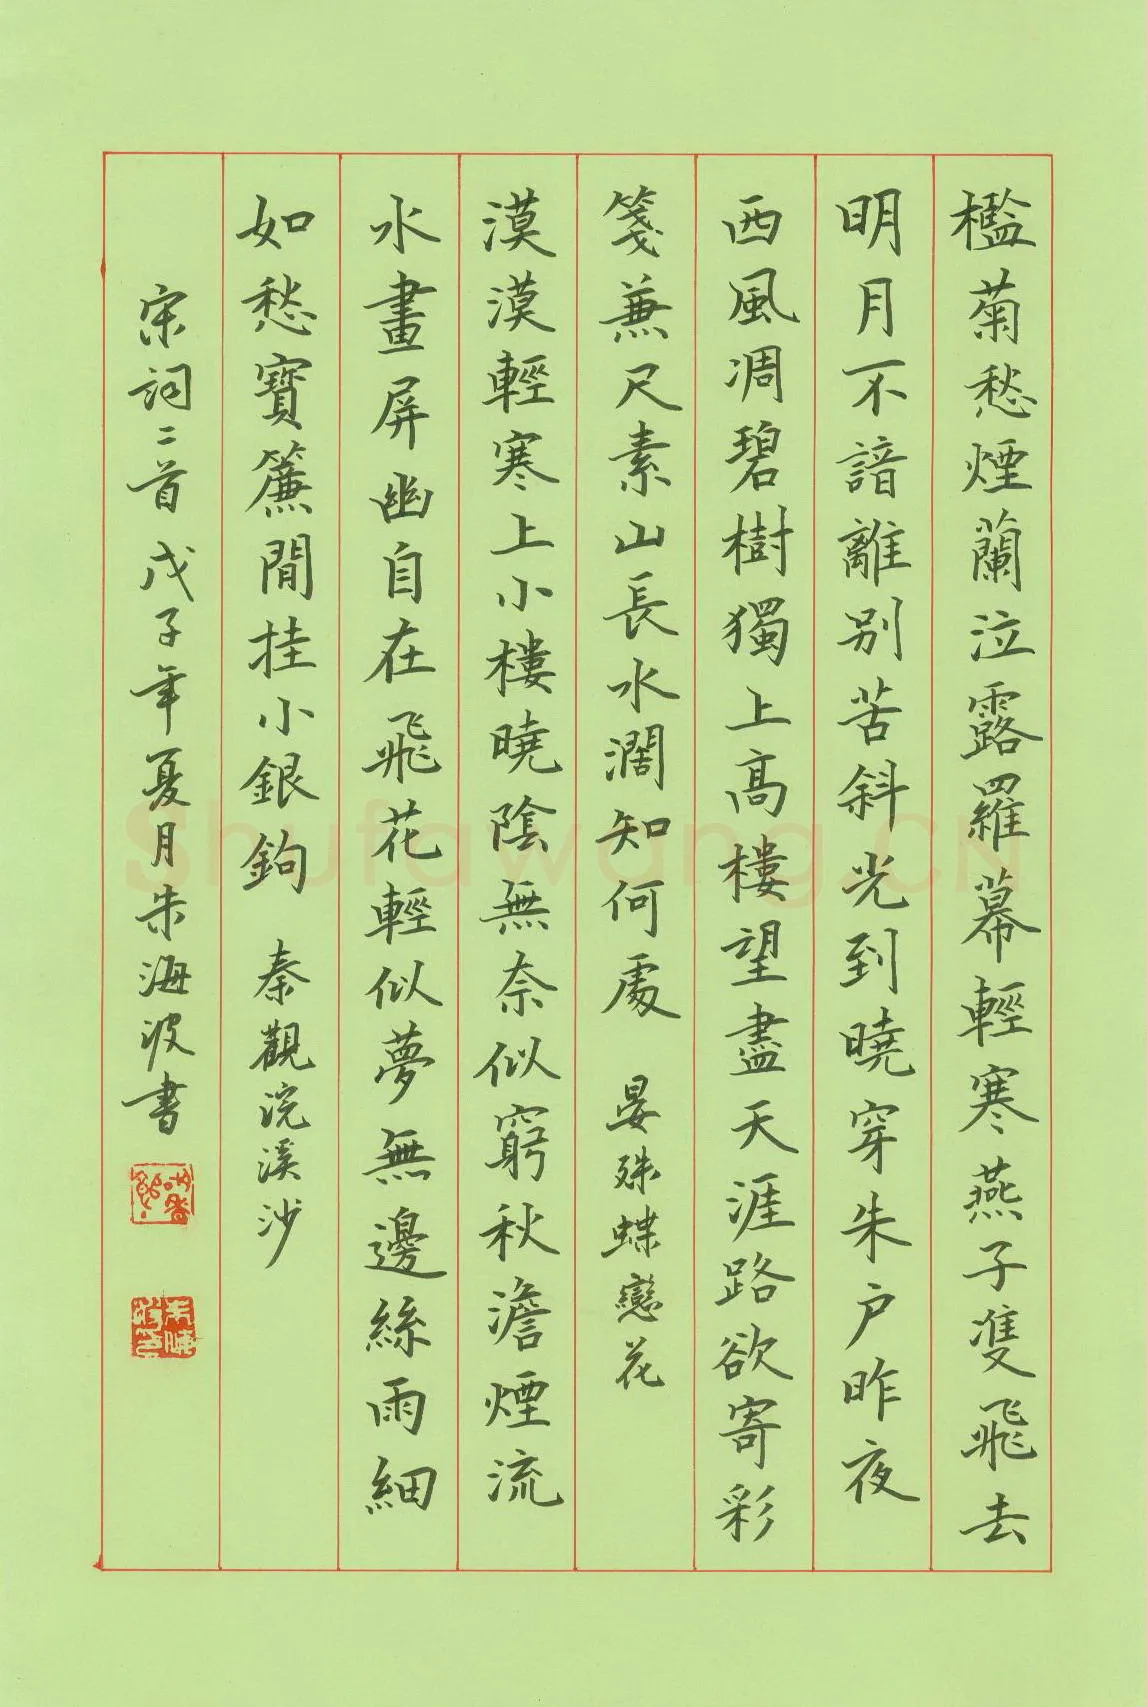 檻菊愁煙蘭泣露羅幕輕寒燕子隻飛去
明月不諳離別苦斜光到曉穿朱户昨夜
西風凋碧樹獨上高樓望盡天涯路欲寄彩
箋兼尺素山長水濶知何處 晏殊蝶戀花
漠漠輕寒上小樓曉陰無奈似窮秋澹煙流
水畫屏幽自在飛花輕似夢無邊絲雨細
如愁寶簾閒挂小銀鉤 秦觀浣溪沙
宋詞二首戊子年夏月朱海波書
Shufawang.CN